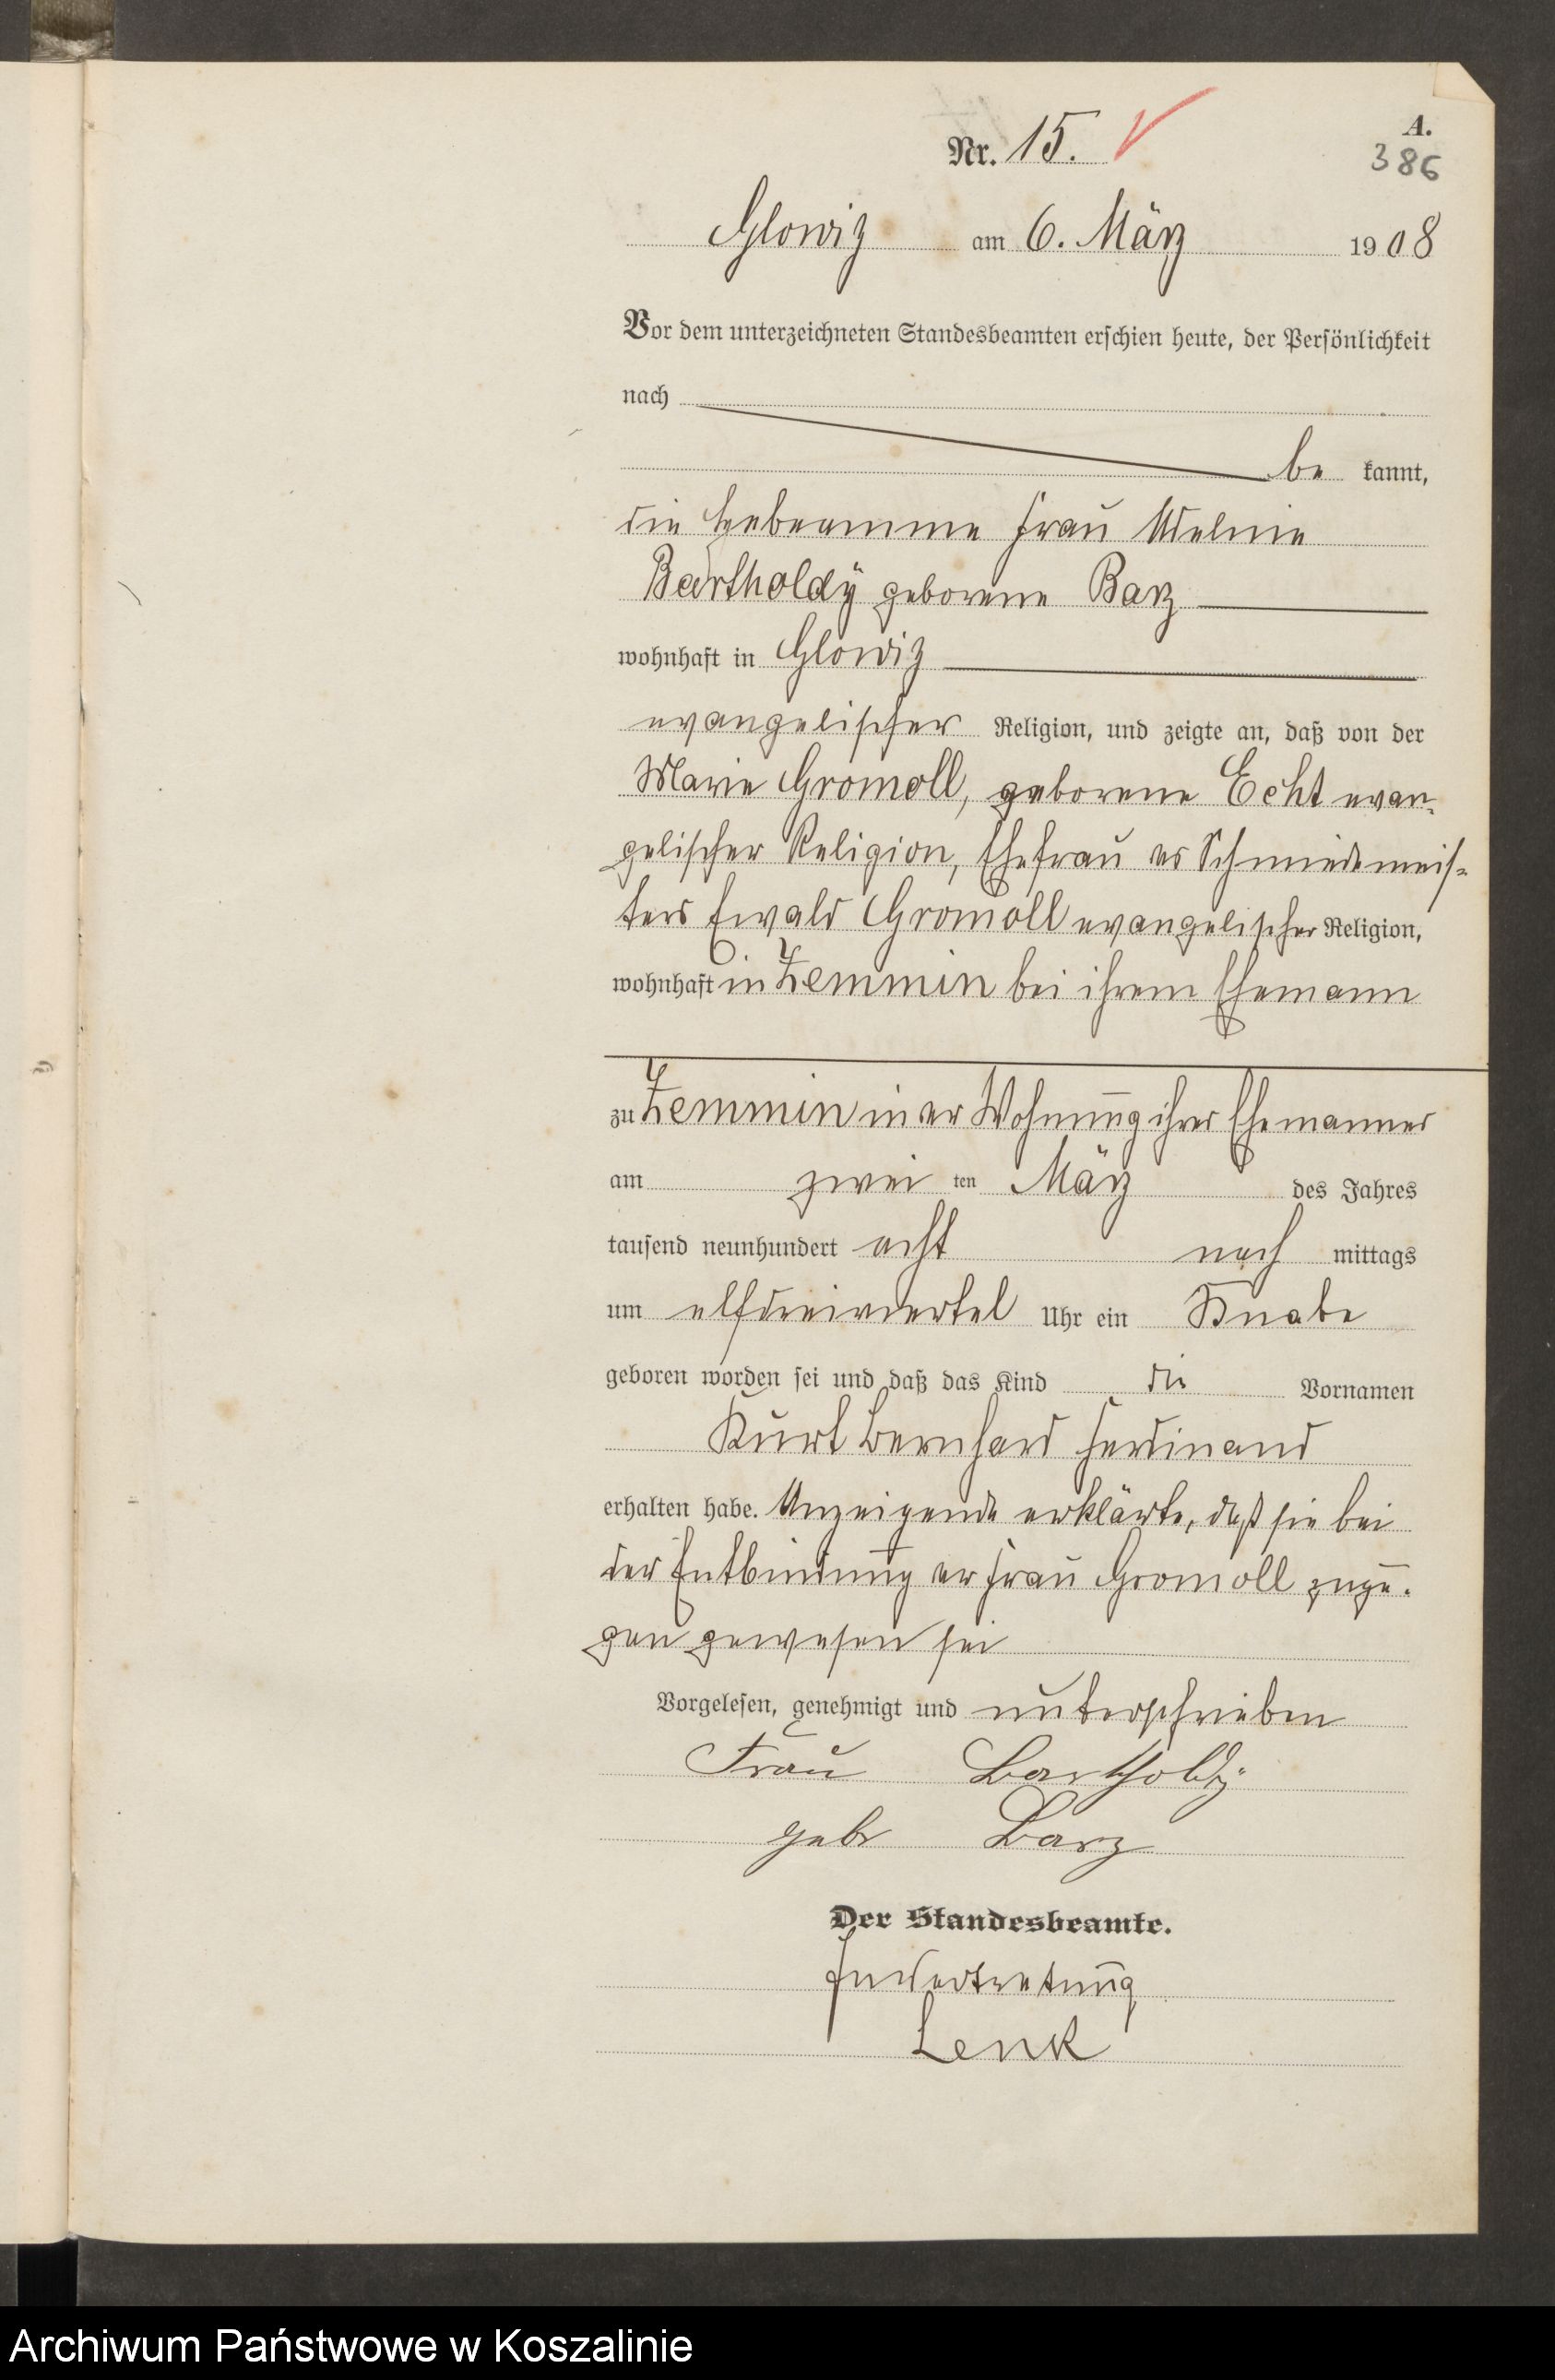 Nr. 15.
A.
386
Glowitz am 6. März 1908
Vor dem unterzeichneten Standesbeamten erschien heute, der Persönlichkeit
nach
be kannt,
die Hebeamme Frau
Bartholdÿ geborene Barz
wohnhaft in Glowitz
evangelischer Religion, und zeigte an, daß von der
Marie Gromoll, geborene Echt evan-
gelischer Religion, Ehefrau des Schmiedemeis-
ters Ewald Gromoll evangelischer Religion,
wohnhaft in Zemmin bei ihrem Ehemann
zu Zemmin in der Wohnung ihres Ehemannes
am zwei ten März des Jahres
tausend neunhundert acht nach mittags
um elfdreiviertel Uhr ein Knabe
geboren worden sei und daß das Kind die Vornamen
Kurt Bernhard Ferdinand
erhalten habe. Anzeigende erklärte, daß sie bei
der Entbindung der Frau Gromoll zuge-
gen gewesen sei
Vorgelesen, genehmigt und unterschrieben
Frau Bartholdÿ
geb Barz
Der Standesbeamte.
In Vertretung
Lenk
Archiwum Państwowe w Koszalinie